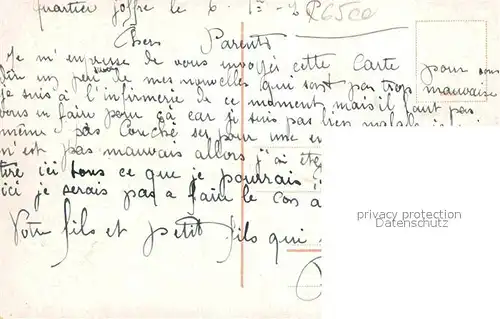 Quartier Joffre le 6
R6500
Chers Parents
Je m'empresse de vous envoyer cette Carte pour vous
dire un peu de mes nouvelles qui sont pas trop mauvaise
Je suis à l'infirmerie de ce moment mais il faut pas
vous en faire pour ça car je suis pas bien malade
même pas Couché pour une
n'est pas mauvais allors j'ai
ici tous ce que je pourrais
ici je serais pas a faire le Con a
Votre fils et petit fils qui
privacy protection
Datenschutz